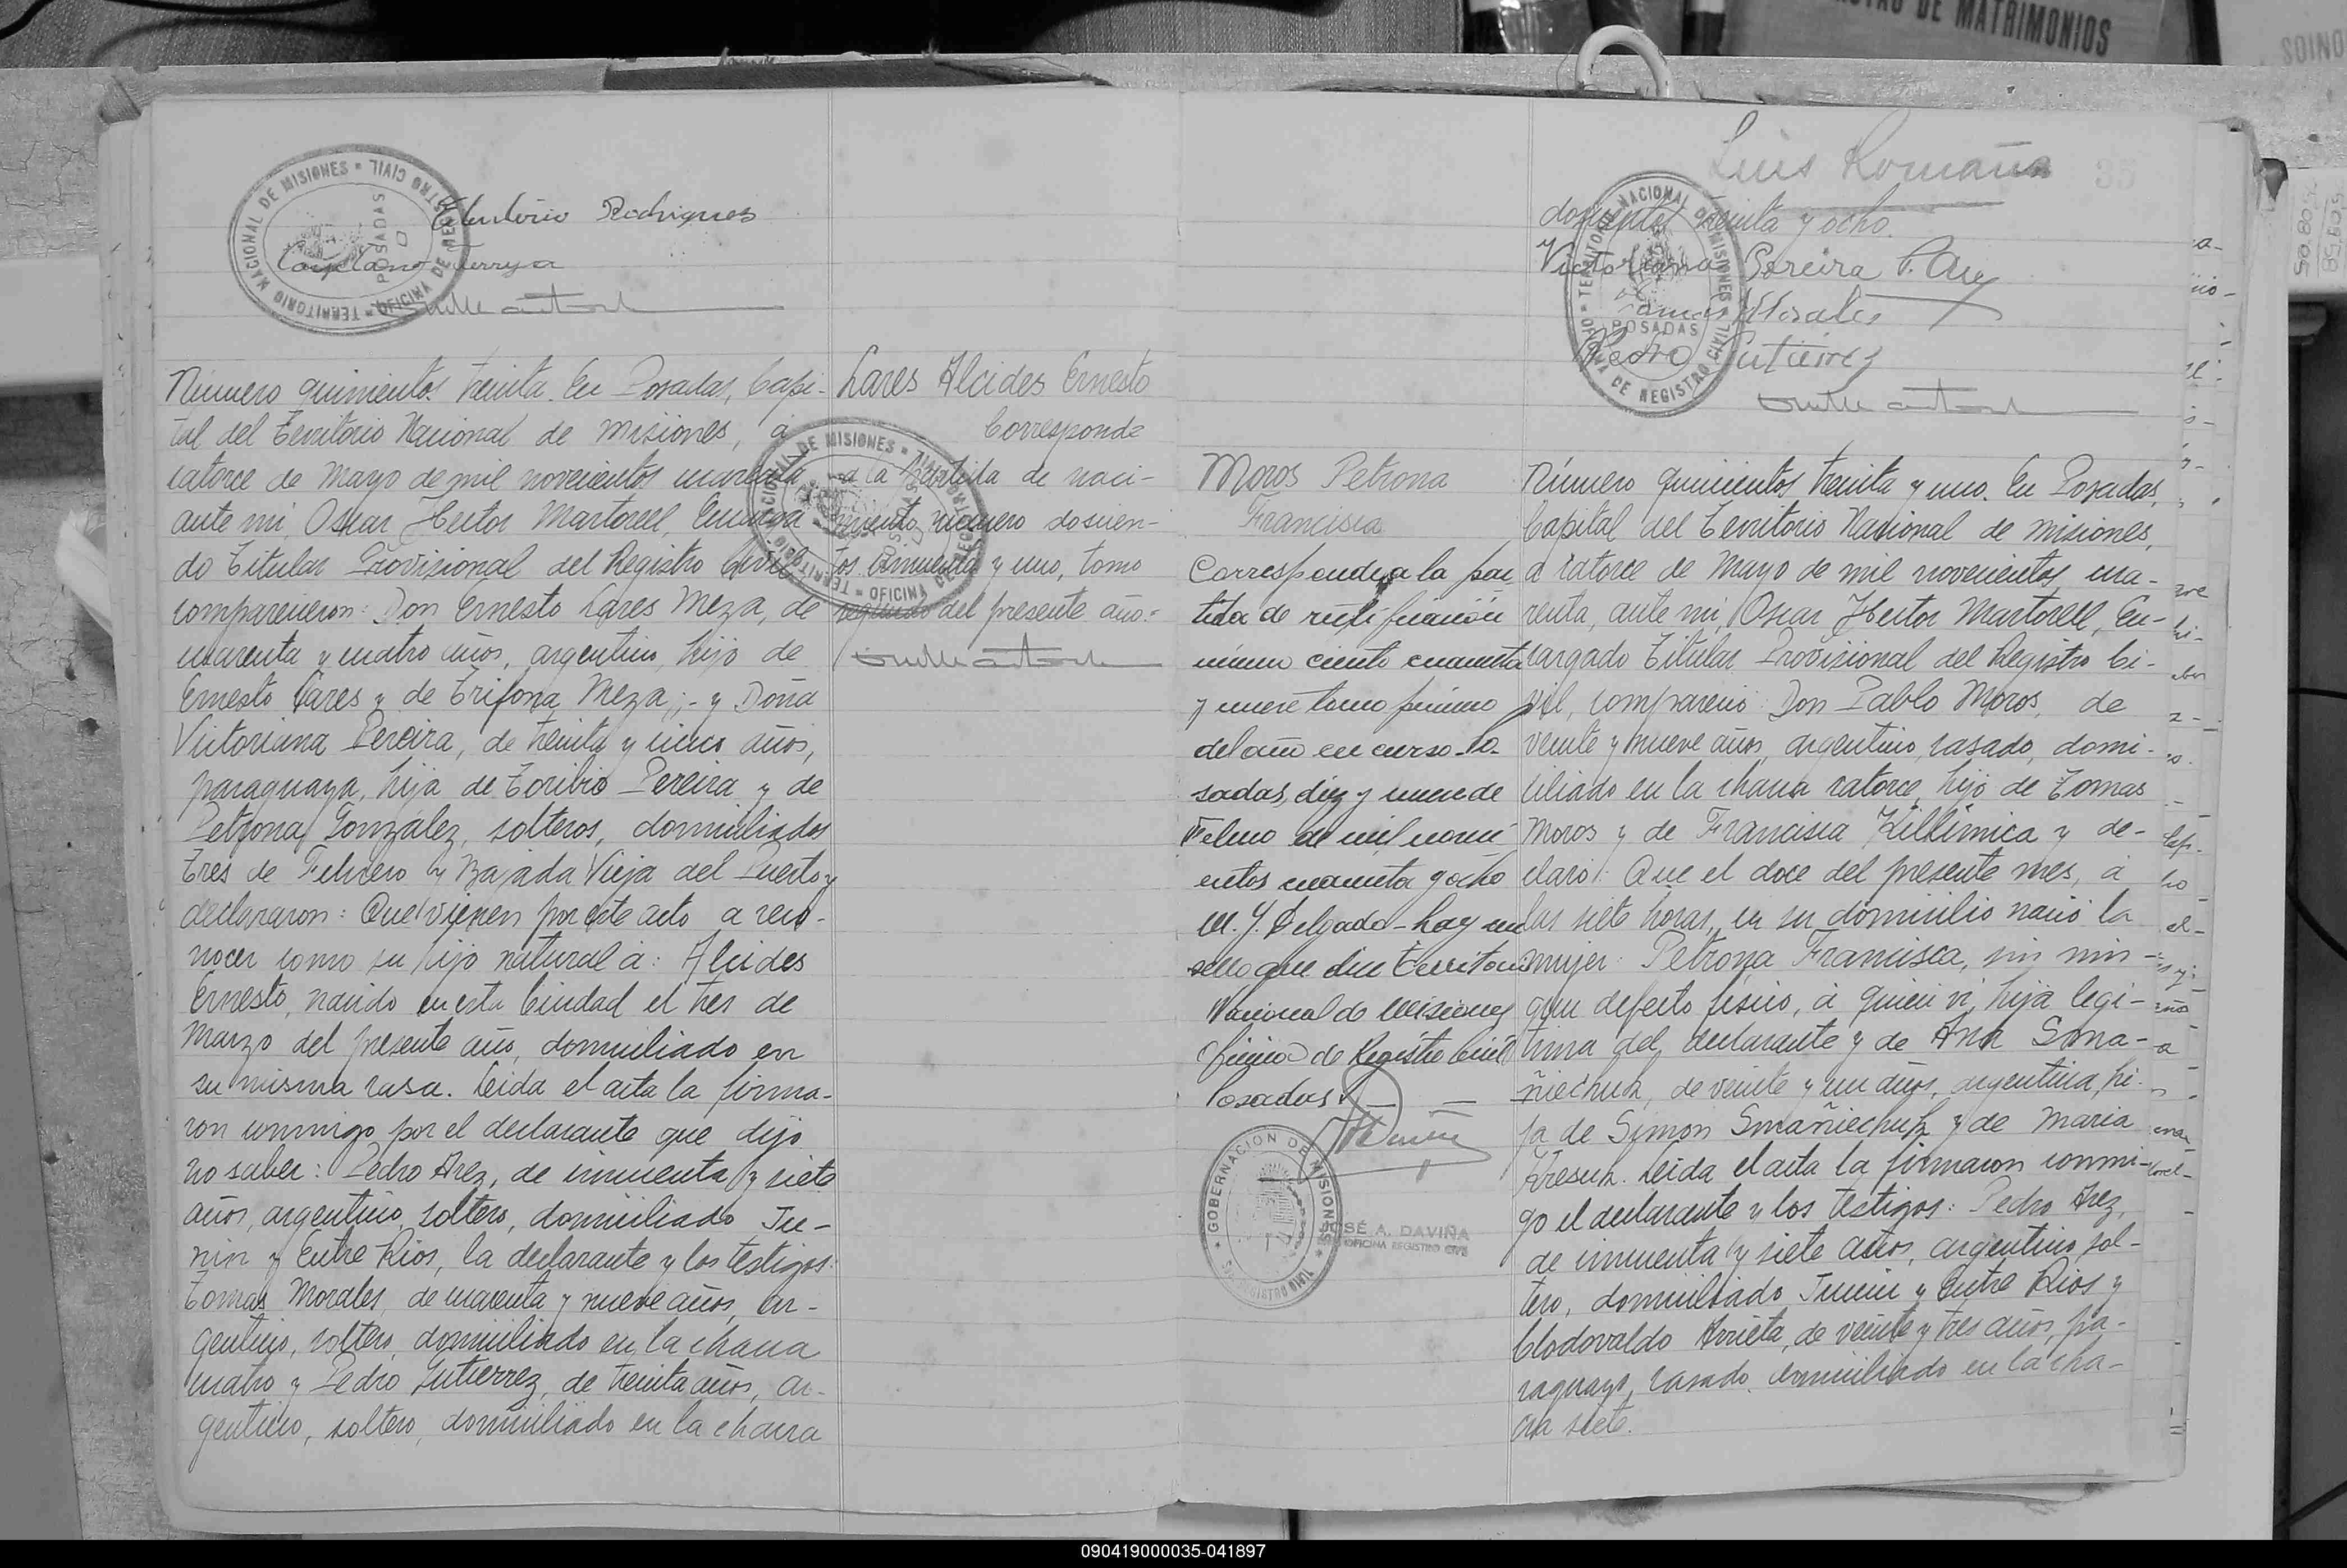 DE MATRIMONIOS
Eleuterio Rodriguez
Cayetano
TERRITORIO NACIONAL DE MISIONES = OFICINA DE REGISTRO CIVIL = POSADAS
Número quinientos treinta. En Posadas, Capi-
tal del Territorio Nacional de Misiones, á
catorce de Mayo de mil novecientos cuarenta
ante mi, Oscar Hector Martorell, Encarga
do Titular Provisional del Registro Civil
comparecieron: Don Ernesto Lares Meza, de
cuarenta y cuatro años, argentino, hijo de
Ernesto Lares y de Trifona Meza; - y Doña
Victoriana Pereira, de treinta y cinco años,
paraguaya, hija de Toribio Pereira y de
Petrona Gonzalez, solteros, domiciliados
Tres de Febrero y Bajada Vieja del Puerto y
declararon: Que vienen por este acto a reco-
nocer como su hijo natural á: Alcides
Ernesto, nacido en esta Ciudad el tres de
Marzo del presente año, domiciliado en
su misma casa. Leida el acta la firma-
ron conmigo por el declarante que dijo
no saber: Pedro Arez, de cincuenta y siete
años, argentino, soltero, domiciliado Ju-
nin y Entre Rios, la declarante y los testigos:
Tomas Morales, de cuarenta y nueve años, ar-
gentino, soltero, domiciliado en la chacra
cuatro y Pedro Gutierrez, de treinta años, ar-
gentino, soltero, domiciliado en la chacra
Lares Alcides Ernesto
Corresponde
a la partida de naci-
miento numero doscien-
tos cincuenta y uno, tomo
segundo del presente año.=
TERRITORIO NACIONAL DE MISIONES = OFICINA DE REGISTRO CIVIL = POSADAS
Luis Romaña
35
doscientos treinta y ocho.
Victoriana Pereira P. Arez
Tomas Morales
Pedro Gutierrez
TERRITORIO NACIONAL DE MISIONES = OFICINA DE REGISTRO CIVIL = POSADAS
Moros Petrona
Francisca
Corresponde a la par
tida de rectificación
número ciento cuarenta
y nueve tomo primero
del año en curso. Po-
sadas, diez y nueve de
Febrero de mil noveci
entos cuarenta y ocho
M. J. Delgado - hay un
sello que dice Territorio
Nacional de Misiones
Oficina de Registro Civil
Posadas.
GOBERNACION DE MISIONES
REGISTRO CIVIL
JOSÉ A. DAVIÑA
OFICINA REGISTRO CIVIL
Número quinientos treinta y uno. En Posadas,
Capital del Territorio Nacional de Misiones,
a catorce de Mayo de mil novecientos cua-
renta, ante mi, Oscar Hector Martorell, En-
cargado Titular Provisional del Registro Ci-
vil, compareció: Don Pablo Moros, de
veinte y nueve años, argentino, casado, domi-
ciliado en la chacra catorce, hijo de Tomas
Moros y de Francisca Killimica y de-
claró: Que el doce del presente mes, á
las siete horas, en su domicilio nació la
mujer: Petrona Francisca, sin nin-
gun defecto fisico, á quien vi, hija legi-
tima del declarante y de Ana Sma-
ñiechuk, de veinte y un años, argentina, hi-
ja de Simon Smañiechuk y de Maria
Kresuk. Leida el acta la firmaron conmi-
go el declarante y los testigos: Pedro Arez,
de cincuenta y siete años, argentino sol-
tero, domiciliado Junin y Entre Rios y
Clodovaldo Arrieta, de veinte y tres años, pa-
raguayo, casado, domiciliado en la cha-
cra siete.
090419000035-041897